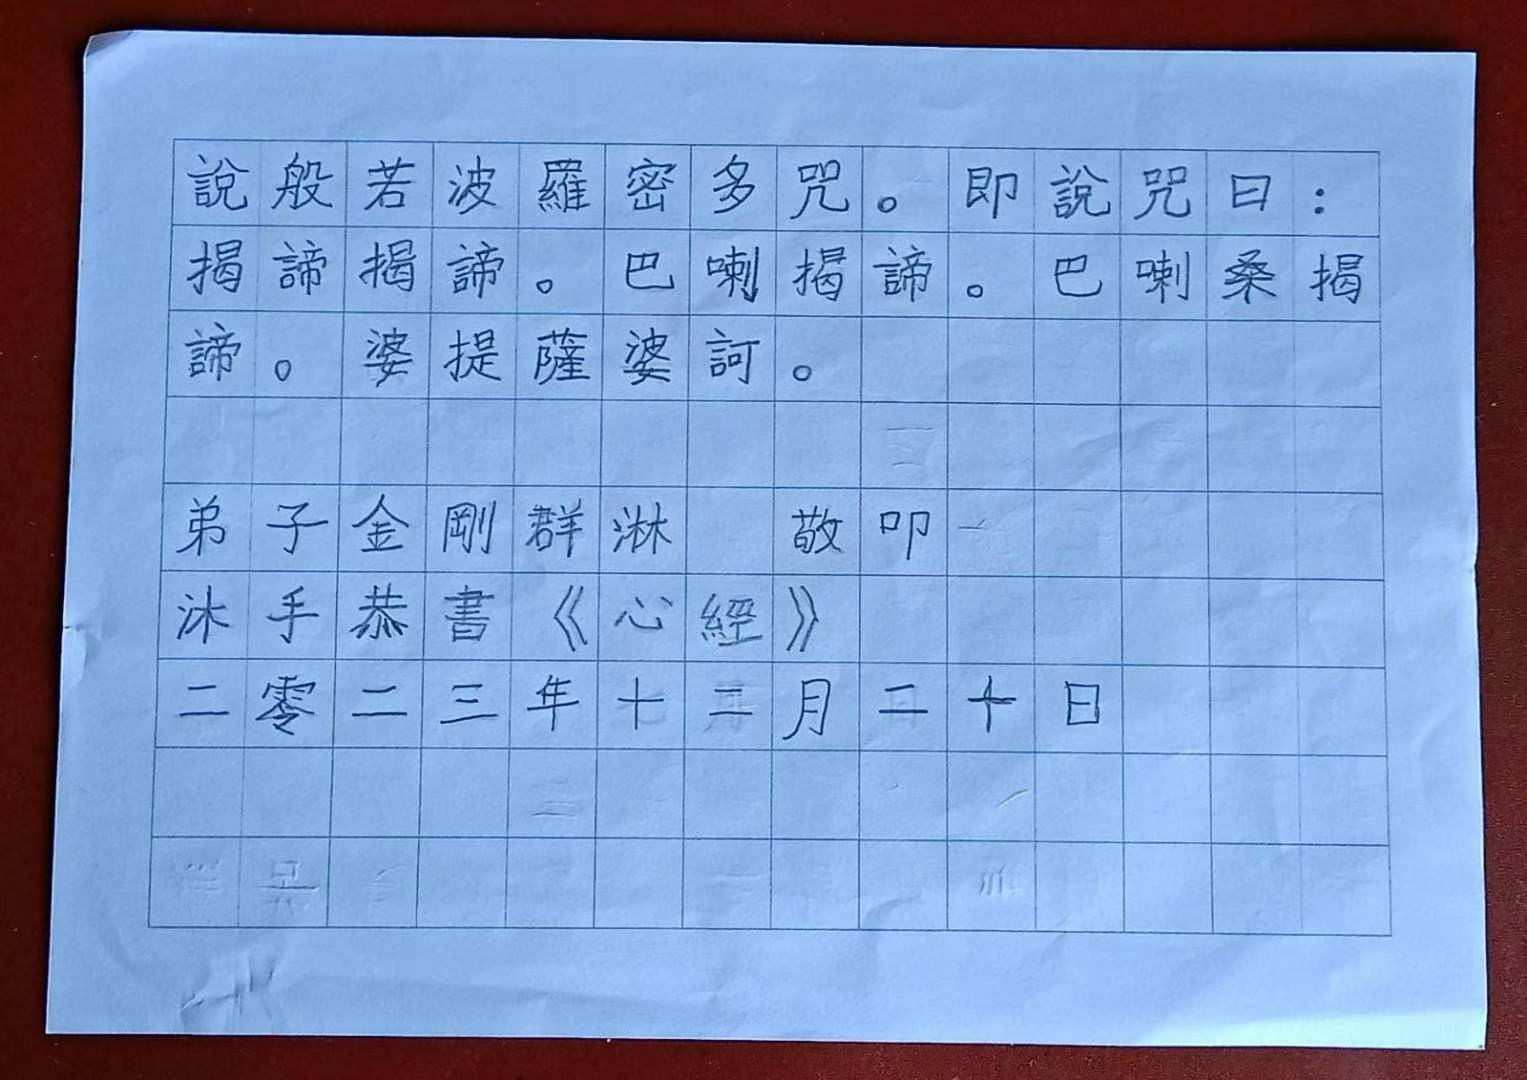 說般若波羅密多咒。即說咒曰：
揭諦揭諦。巴喇揭諦。巴喇桑揭
諦。婆提薩婆訶。
弟子金剛群淋 敬叩
沐手恭書《心經》
二零二三年十二月二十日